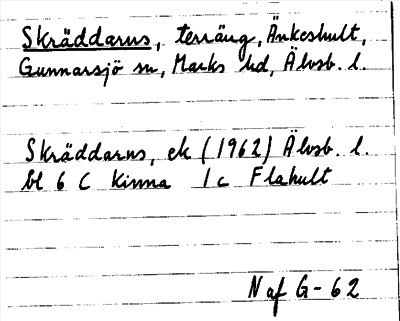 Skräddarns, terräng, Änkeshult,
Gunnarsjö sn, Marks hd, Älvsb. l.
Skräddarns, ek (1962) Älvsb. l.
bl 6 C Kinna 1 c Flahult
N af G-62